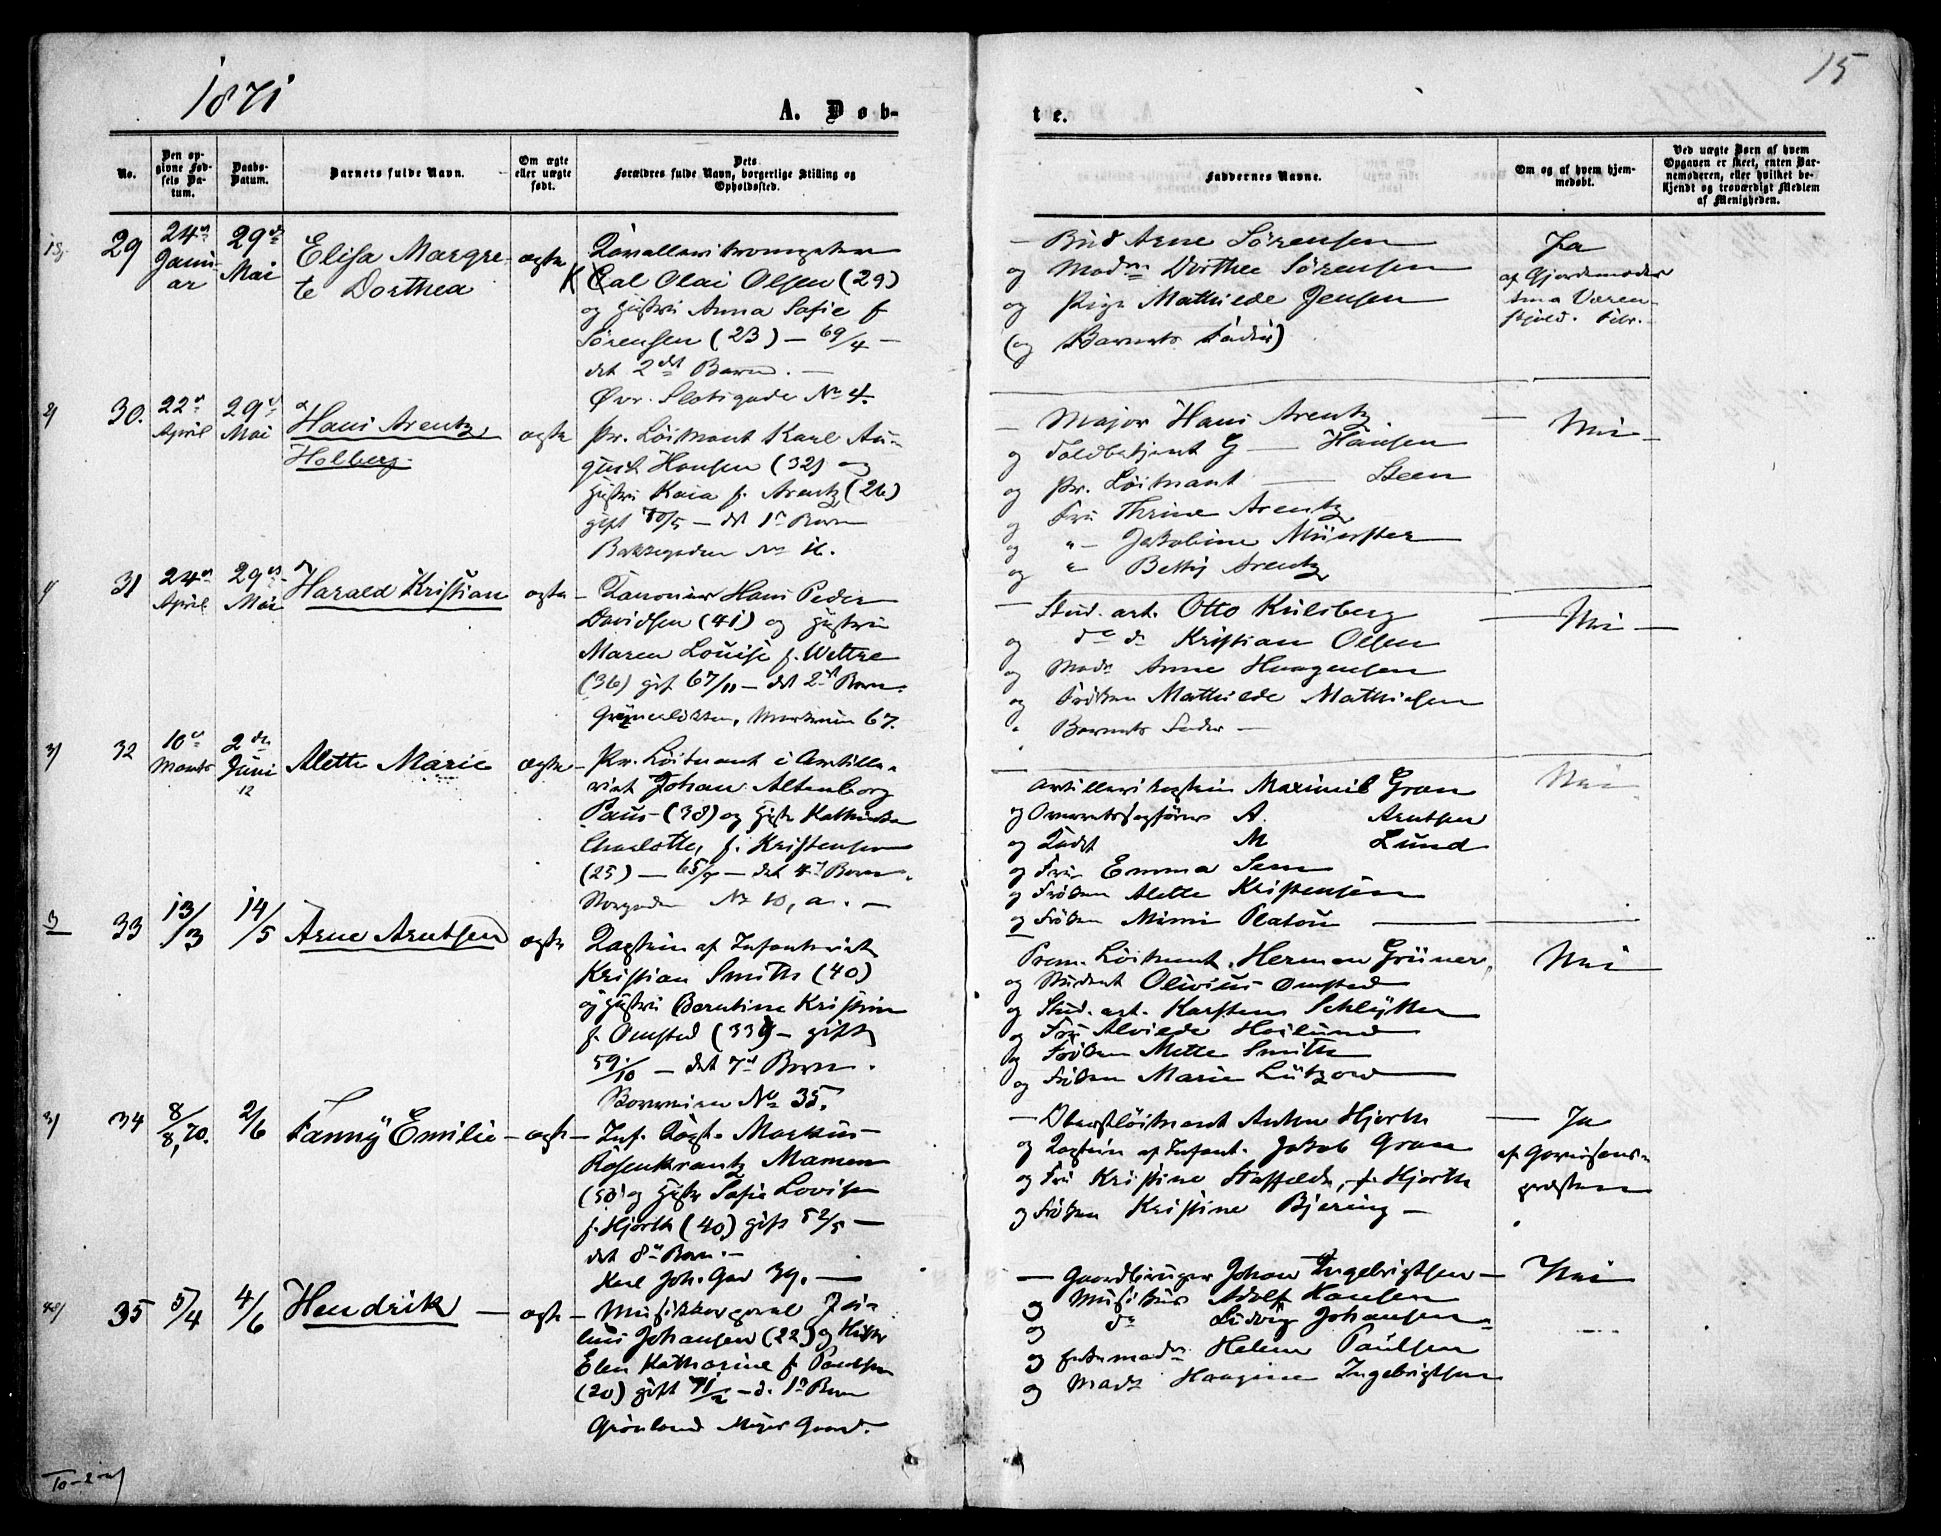 1871
15
A. Døb-
te.
No.
Den op-
givne Fød-
sels Da-
tum.
Daabs-
Datum.
Barnets fulde Navn.
Om ægte
eller uægte
født.
Dets
Forældres fulde Navn, borgerlige Stilling og
Opholdssted.
Faddernes Navne.
Om og af hvem hjem-
medøbt.
Ved uægte Børn af hvem
Opgaven er skeet, enten Bar-
nemoderen, eller hvilket be-
kjendt og troværdigt Medlem
af Menigheden.
29
24
Janu-
ar
29
Mai
Elisa Margre-
te Dorthea
ægte
Carl Olai Olsen (29)
og Hustru Anna Sofie f
Sørensen (23) — 69/4 —
det 2det Barn. —
Øvr. Slotsgade No 4.
— Bud Arne Sørensen
og Mad. Dorthea Sørensen
og Pige Mathilde Jensen
(og Barnets Fader)
Ja
af Gjordemoder
30.
22
April
29
Mai
Hans Arentz
Holberg.
ægte
Pr. Løitnant Karl Au-
gust Hansen (32) og
Hustru Kaia f. Arentz (26)
gift 70/5 — det 1ste Barn
Bakkegaden No
— Major Hans Arentz
og Toldbetjent G — Hansen
og Pr. Løitnant — Steen
og Fru Thrine Arentz
og " — Jakobine Münster
og " Betty Arentz
Nei —
31
24
April
29
Mai
Harald Kristian
ægte
— Kanoner Hans Peder
Davidsen (41) og Hustru
Maren Louise f. Wettre
(36) gift 67/11 — det 2det Barn.
Grünerløkken, 67.
— Stud. art. Otto Kulsberg
og do do Kristian Olsen
og Mad. Anne Haagensen
og Frøken Mathilde Mathiesen
" Barnets Fader —
Nei —
32
10
Marts
2den
Juni
12
Alette Marie
ægte
— Pr. Løitnant i Artille-
riet Johan Altenborg
Paus (38) og Hustr Kathinka
Charlotte, f. Kristensen
(25) — — det 4de Barn.
Storgaden No 10, a. —
Artillerikaptein Maximil Gran
og Overretssagfører A. Arntsen
og Kadet M Lund
og Fru Emma Sem
og Frøken Alette Kristensen
og Frøken Mimi Platou —
Nei
33
13/3
14/5
Arne Arntsen
ægte
Kaptein af Infanteriet
Kristian Smith (40)
og Hustru Berntine Kristine
f. Omsted (33) — gift
59/10 — det 7de Barn.
No 35.
Prem. Løitnant Herman Grüner
og Student Olivius Omsted
og Stud. art. Karsten Schlytter
og Fru Alvilde Hoilund
og Frøken Mette Smith
og Frøken Marie Lützow —
Nei
34
8/8, 70.
2/6
Fanny Emilie —
ægte —
Inf. Kapt. Markus
Rosenkrantz Mamen
(50) og Hustr Sofie Lovise
f. Hjorth (40) gift 52/5 —
det 8de Barn. —
Karl Joh. Gad 39. —
— Oberstløitnant Anton Hjorth
og Kaptein af Infant. Jakob Gran
og Fru Kristine Staffeldt, f. Hjorth
og Frøken Kristine Bjering —
— Ja
af Garnisons-
præsten
35
5/4
4/6
Hendrik —
ægte
— Musikkorporal Ju-
lius Johansen (22) og Hustr
Elen Katharine f. Paulsen
(20) gift 71/2 — d. 1ste Barn
Grønland Meyer Gaard.
— Gaardbruger Johan Ingebrigtsen —
og Musikus Adolf Hansen
og do Ludvig Johansen
og Enkemad. Helene Paulsen
og Mad. Haagine Ingebrigtsen
Nei